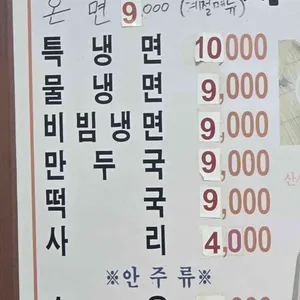 온 면 9000 (계절메뉴)
특 냉 면 10,000
물 냉 면 9,000
비 빔 냉 면 9,000
만 두 국 9,000
떡 국 9,000
사 리 4,000
※안 주 류※